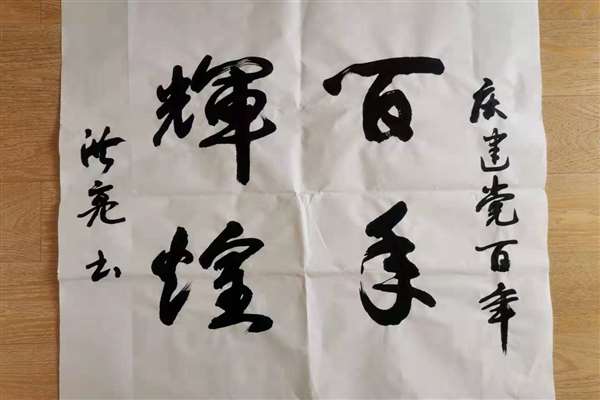 庆建党百年
百年
輝煌
洪亮书